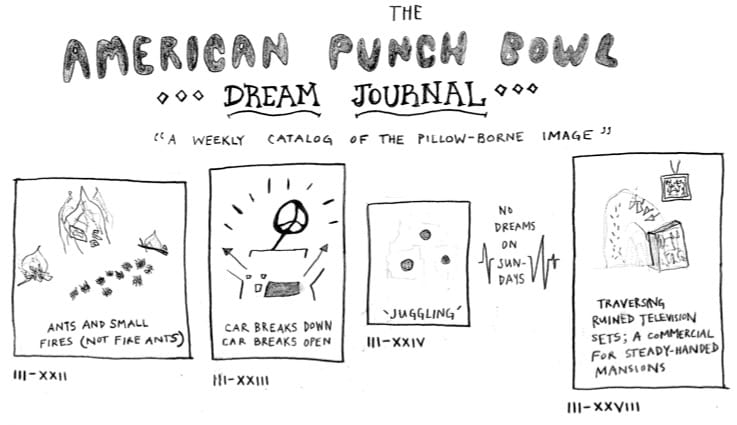 THE
AMERICAN PUNCH BOWL
DREAM JOURNAL
"A WEEKLY CATALOG OF THE PILLOW-BORNE IMAGE"
ANTS AND SMALL
FIRES (NOT FIRE ANTS)
III-XXII
CAR BREAKS DOWN
CAR BREAKS OPEN
III-XXIII
'JUGGLING'
III-XXIV
NO
DREAMS
ON
SUN-
DAYS
TRAVERSING
RUINED TELEVISION
SETS; A COMMERCIAL
FOR STEADY-HANDED
MANSIONS
III-XXVIII